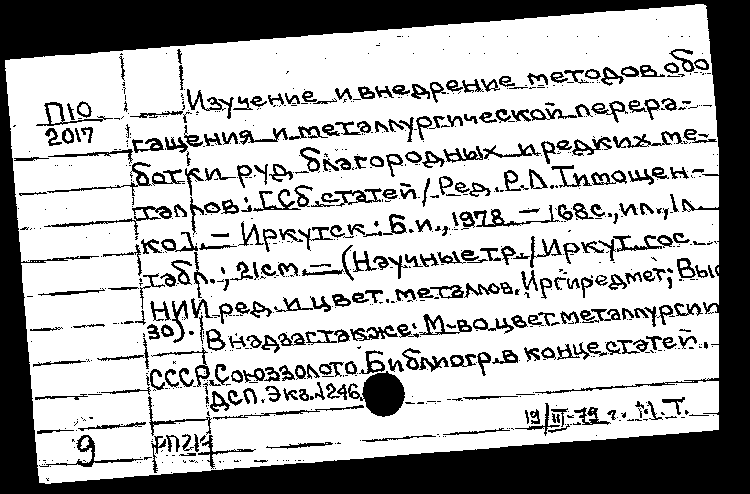 П10
2017
Изучение и внедрение методов обо
гащения и металлургической перера-
ботки руд благородных и редких ме-
таллов: [Сб. статей / Ред. Р.Л. Тимощен-
ко]. — Иркутск: Б.и., 1978. — 168 с., ил., 1 л.
табл.; 21 см. — (Научные тр. / Иркут. гос.
НИИ ред. и цвет. металлов. Иргиредмет;
30). В надзаг также: М-во цвет. металлургии
СССР. Союззолото. Библиогр. в конце статей.
ДСП. Экз. №1246.
19/III-79 г. М.Т.
9